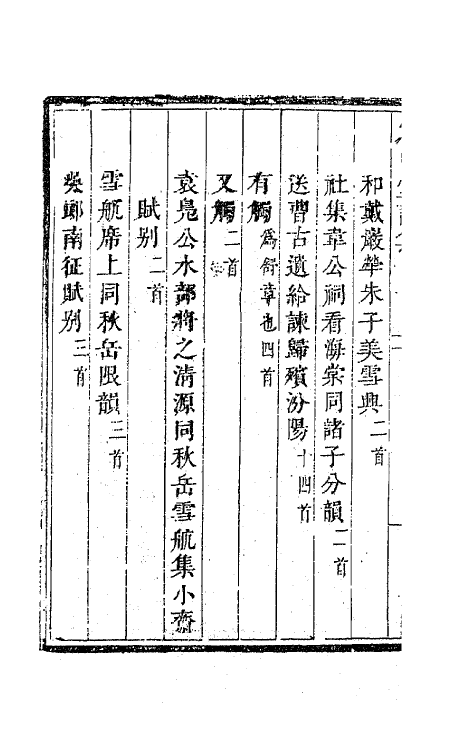 和戴巖犖朱子美雪興二首
社集韋公祠看海棠同諸子分韻二首
送曹古遺給諫歸殯汾陽十四首
有觸為舒章也四首
又觸二首
袁鳧公水部將之清源同秋岳雪航集小齋
賦别二首
雪航席上同秋岳限韻三首
吳鄉南征賦别三首